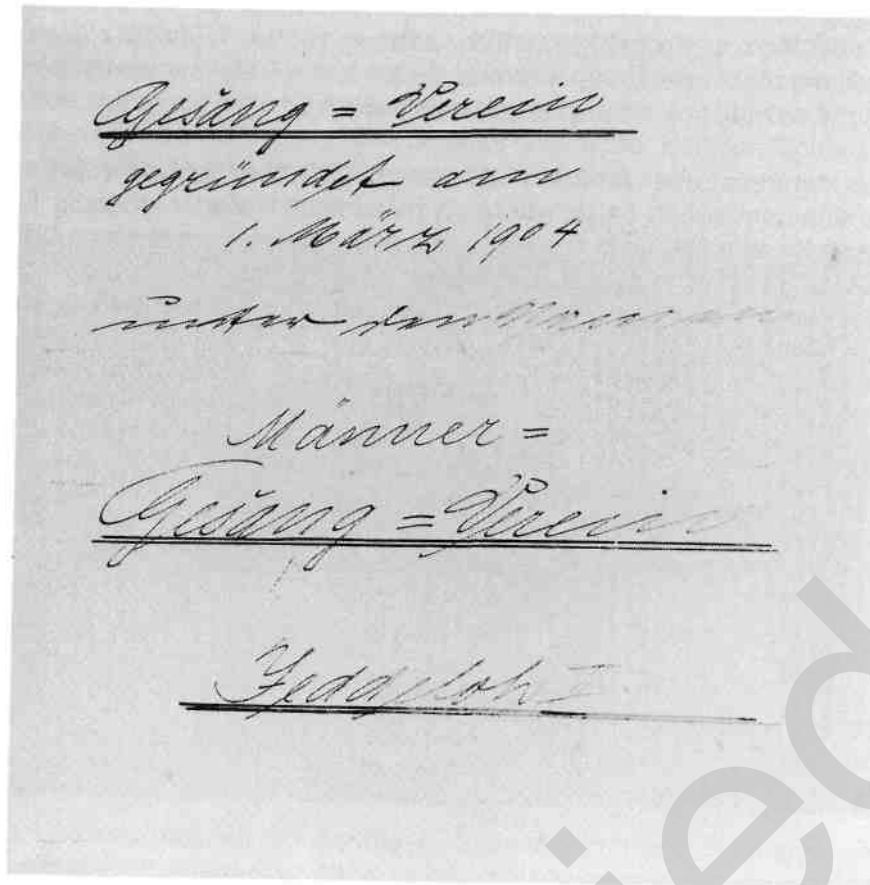 Gesang = Verein
gegründet am
1. März 1904
unter den Namen
Männer =
Gesang = Verein
Jeddeloh I